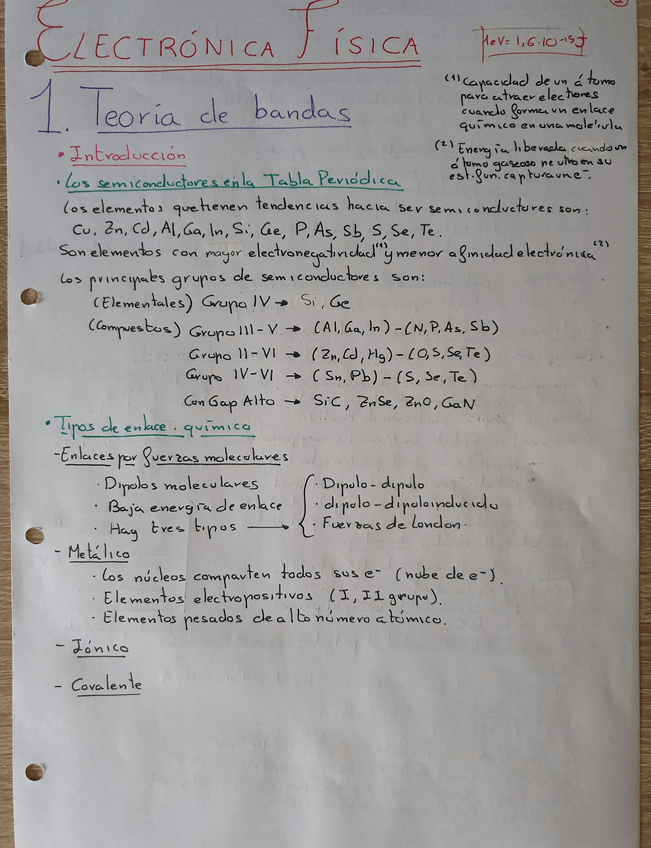 ELECTRÓNICA FÍSICA
1eV = 1,6·10⁻¹⁹J
1. Teoría de bandas
(1) Capacidad de un átomo
para atraer electrones
cuando forma un enlace
químico en una molécula
(2) Energía liberada cuando un
átomo gaseoso neutro en su
est. fun. captura un e⁻.
• Introducción
• Los semiconductores en la Tabla Periódica
Los elementos que tienen tendencias hacia ser semiconductores son:
Cu, Zn, Cd, Al, Ga, In, Si, Ge, P, As, Sb, S, Se, Te.
Son elementos con mayor electronegatividad⁽¹⁾ y menor afinidad electrónica⁽²⁾
Los principales grupos de semiconductores son:
(Elementales) Grupo IV → Si, Ge
(Compuestos) Grupo III-V → (Al, Ga, In) - (N, P, As, Sb)
Grupo II-VI → (Zn, Cd, Hg) - (O, S, Se, Te)
Grupo IV-VI → (Sn, Pb) - (S, Se, Te)
Con Gap Alto → SiC, ZnSe, ZnO, GaN
• Tipos de enlace químico
- Enlaces por fuerzas moleculares
· Dipolos moleculares
· Baja energía de enlace
· Hay tres tipos → { · Dipolo-dipolo
· dipolo-dipolo inducido
· Fuerzas de London.
- Metálico
· Los núcleos comparten todos sus e⁻ (nube de e⁻).
· Elementos electropositivos (I, II grupo).
· Elementos pesados de alto número atómico.
- Iónico
- Covalente